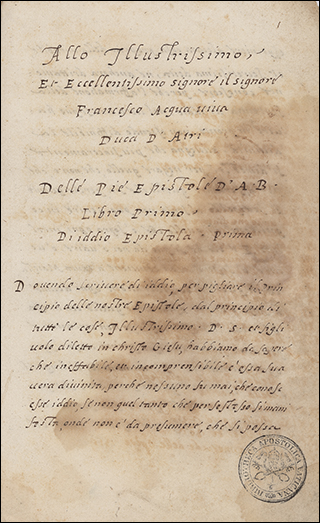 1
Allo Illustrissimo,
Et Eccellentissimo signore il signore
Francesco Acqua viva
Duca D'Atri
Delle Pie Epistole D'A B.
Libro Primo.
Di iddio Epistola. prima
Dovendo scrivere di iddio, per pigliare il prin
cipio delle nostre Epistole, dal principio di
tutte le cose, Illustrissimo. D. S. et figli
uolo diletto in christo Giesu, habbiamo da sapere
che ineffabile, et incomprensibile è essa sua
vera divinita, perche nessuno fu mai che conosc
esse iddio se non quel tanto che per se stesso si mani
festa onde non è da presumere, che si possa
BIBLIOTHECA APOSTOLICA VATICANA